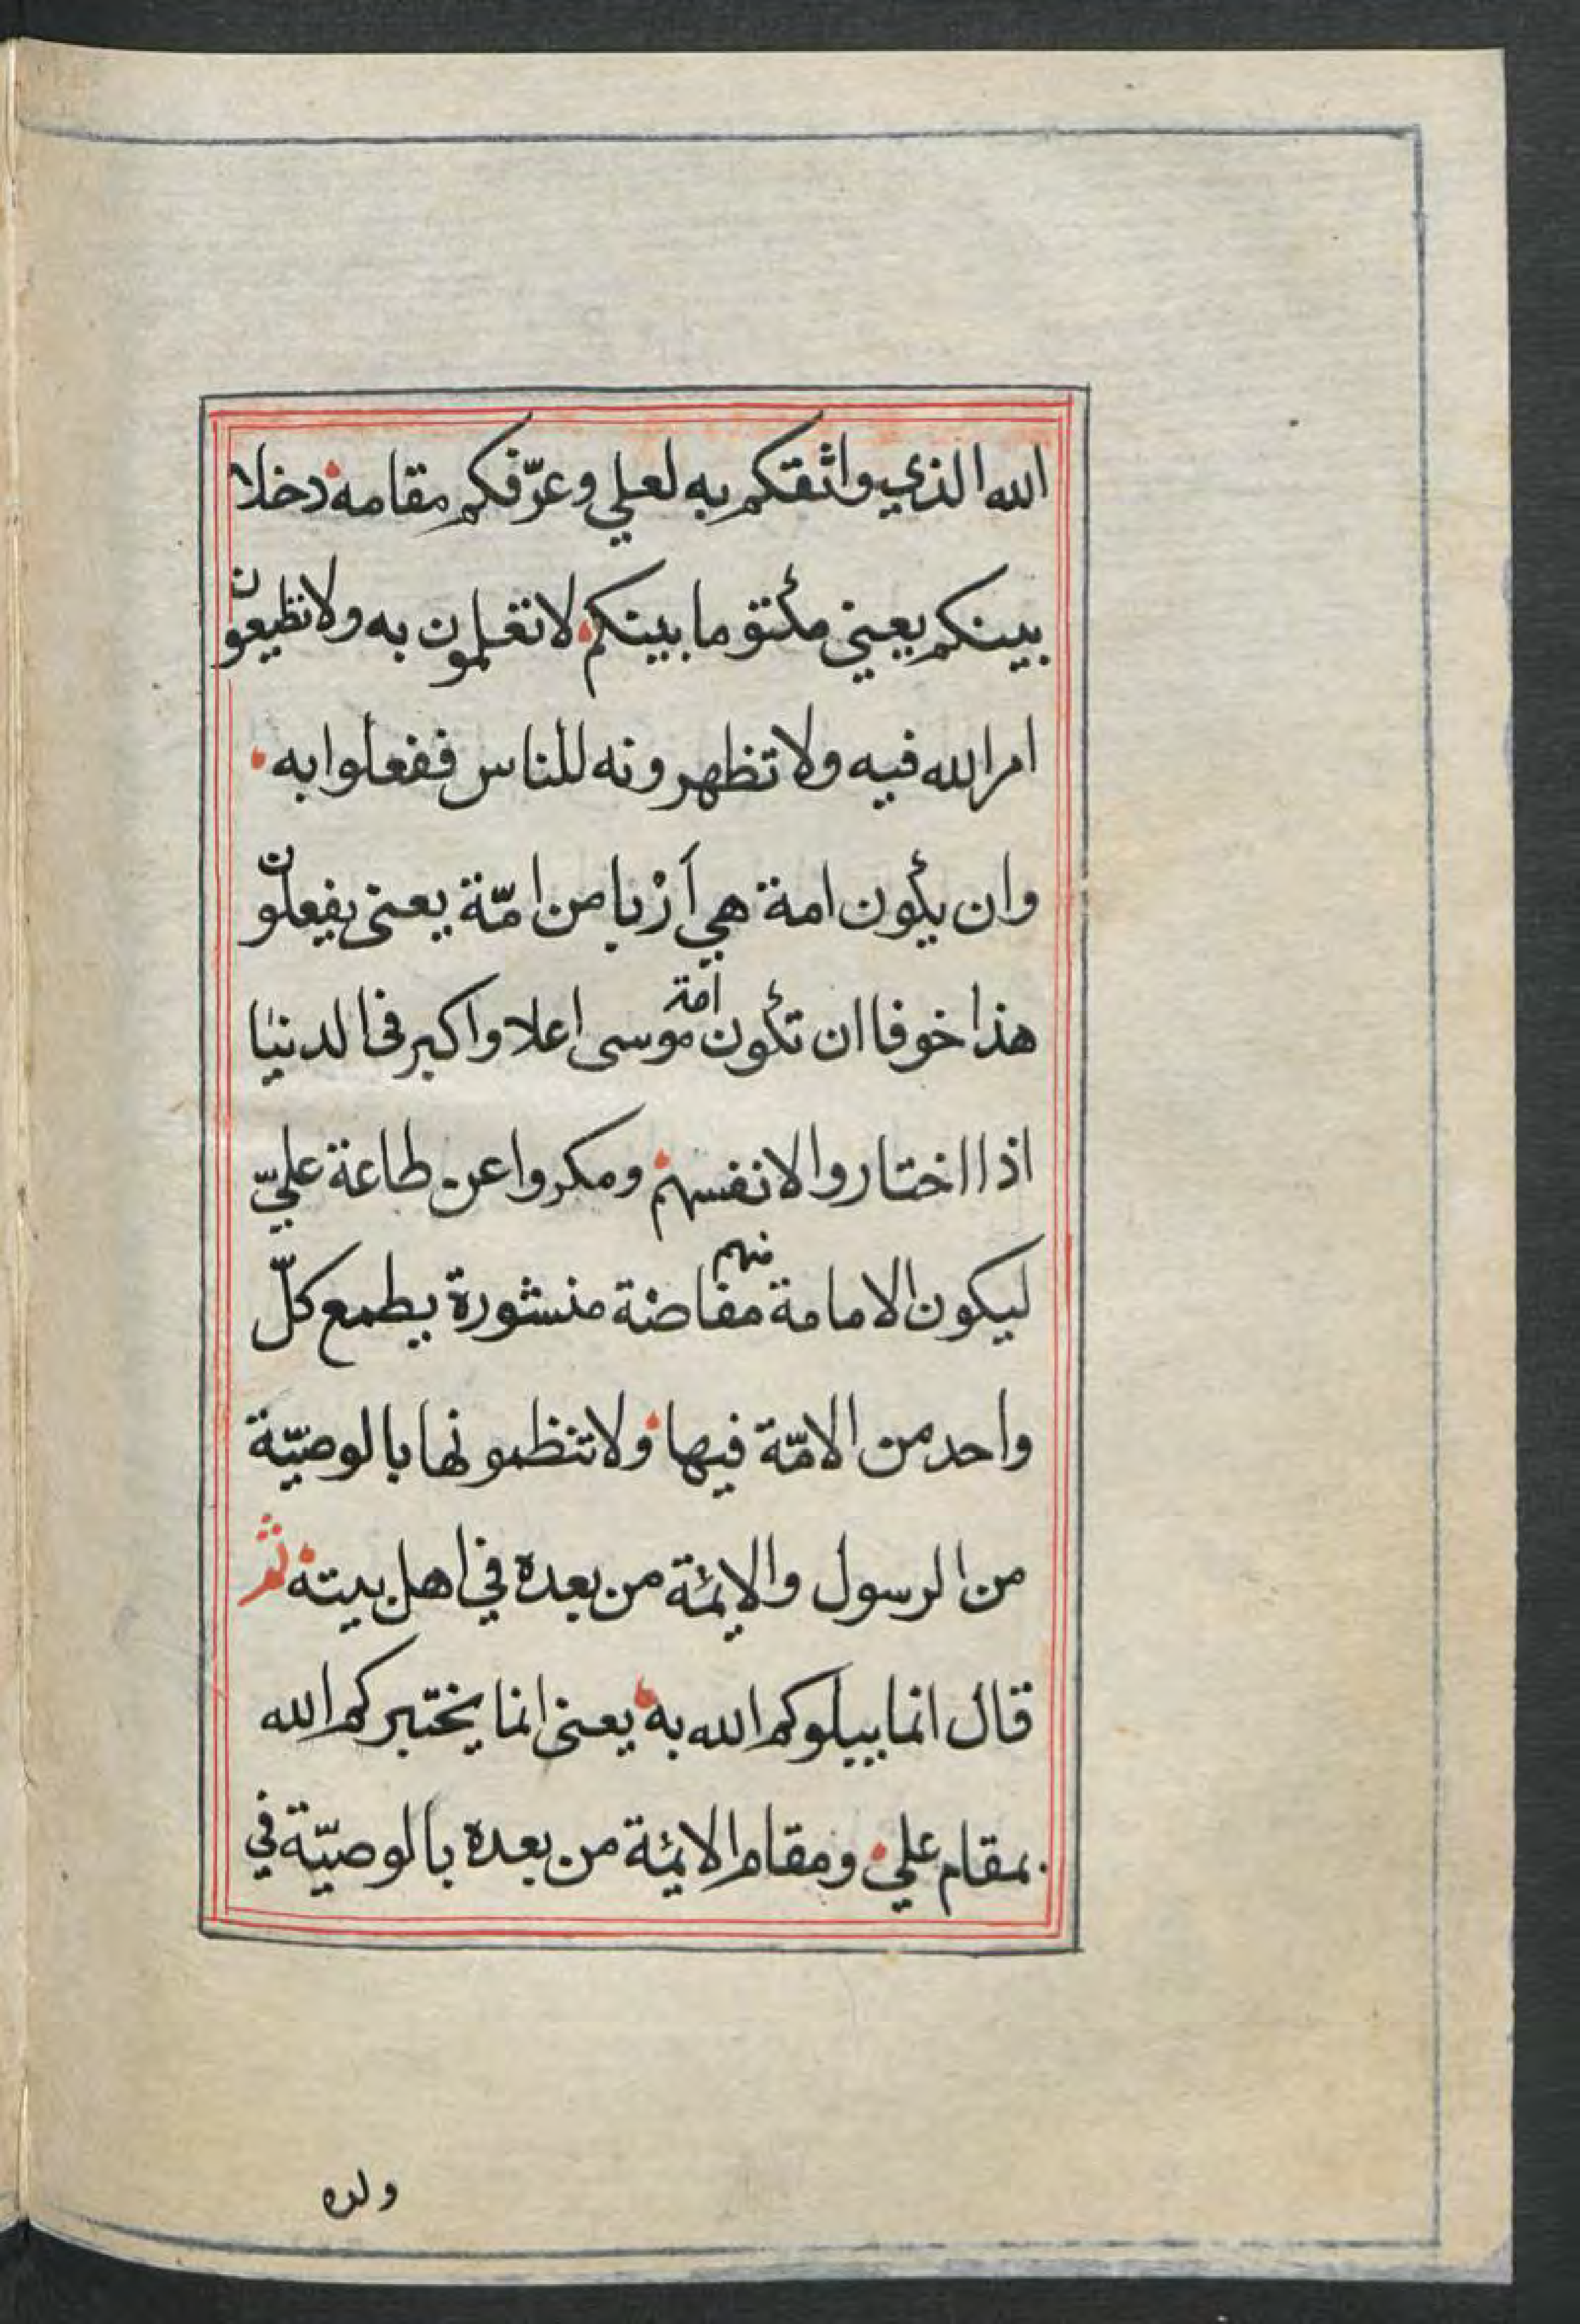 الله الذي واثقكم به لعلي وعرّفكم مقامه دخلا
بينكم يعني مكتوما بينكم لا تعلمون به ولا تطيعون
امر الله فيه ولا تظهرونه للناس ففعلوا به
وان يكون امة هي أرْبا من امّة يعني يفعلون
هذا خوفا ان تكون امة موسى اعلا واكبر في الدنيا
اذا اختاروا لانفسهم ومكروا عن طاعة عليّ
ليكون الامامة منهم مفاضة منشورة يطمع كلّ
واحد من الامّة فيها ولا تنظمونها بالوصيّة
من الرسول والايمّة من بعده في اهل بيته ثم
قال انما يبلوكم الله به يعني انما يختبركم الله
بمقام علي ومقام الايمّة من بعده بالوصيّة في
ولده